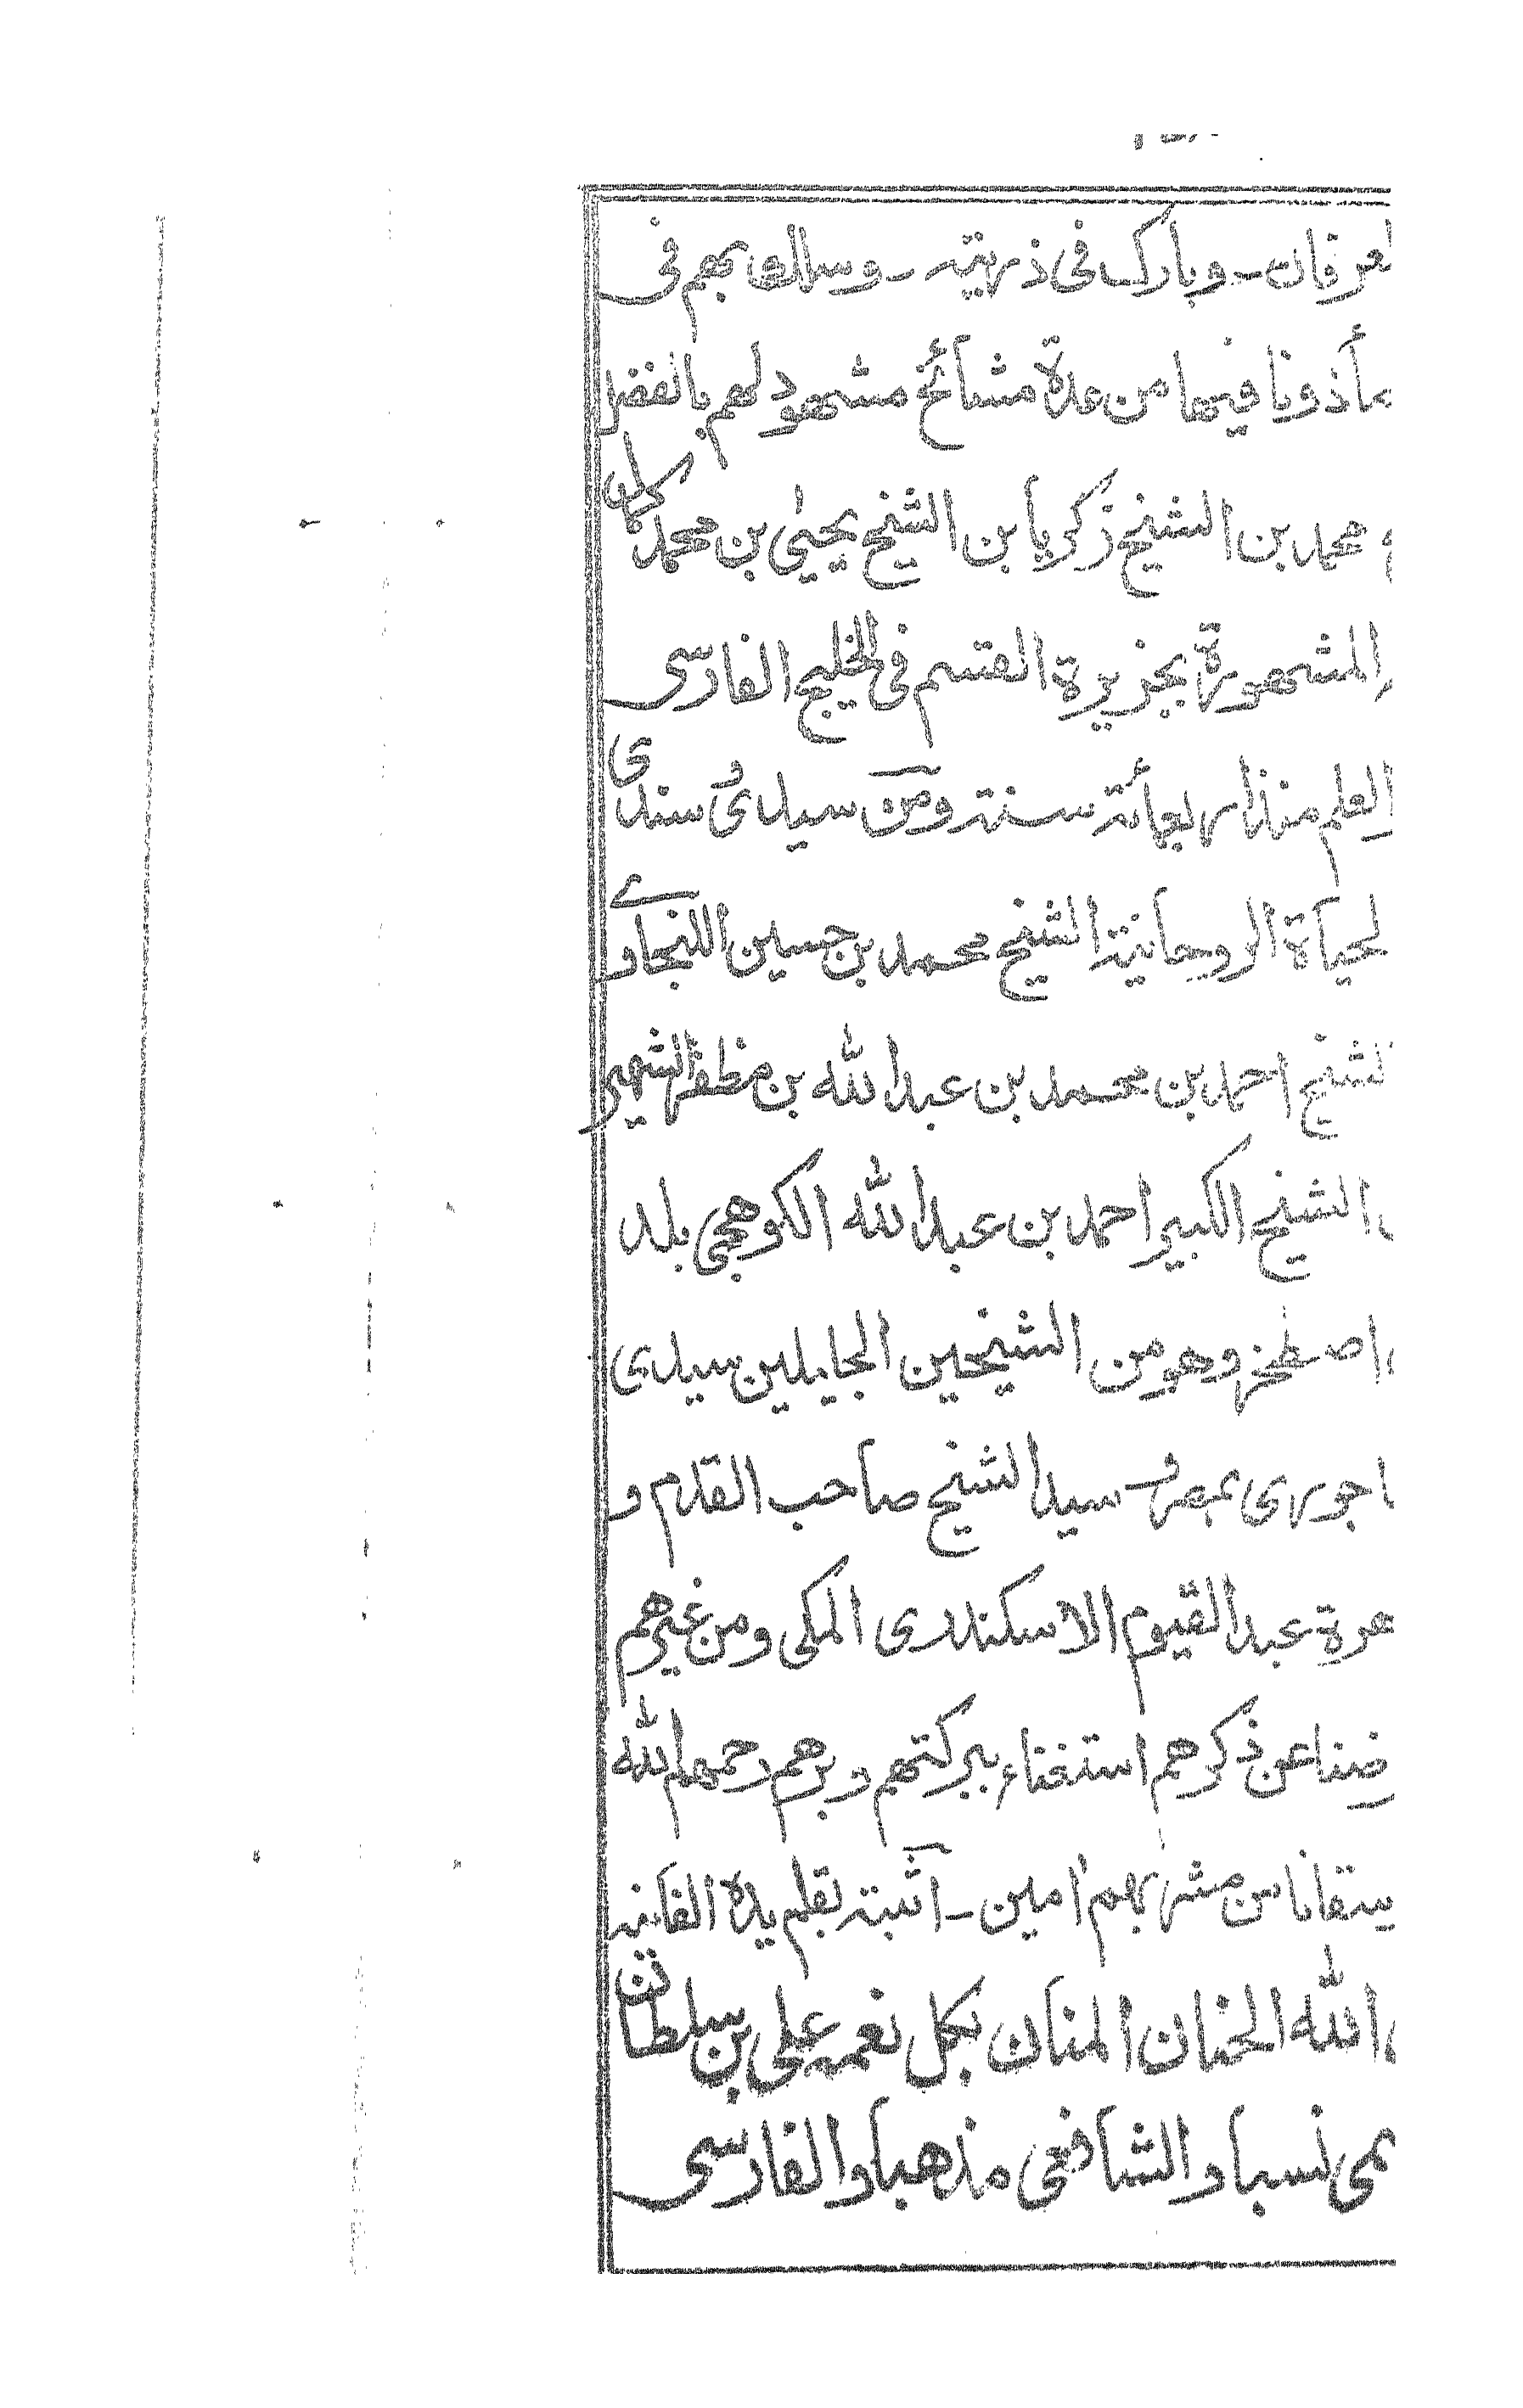 لعرفان ـ وبارك فى ذريته ـ وسلك بهم فى
مأذونا فيها من عدة مشائخ مشهود لهم بالفضل
محمد بن الشيخ زكريا بن الشيخ يحيىٰ بن محمد كان
المشهورة بجزيرة القسم فى الخليج الفارسى
العلم منذ اربعمائة سنة ومن سيدى وسندى
لحياة الروحانية الشيخ محمد بن حسين اللنجاوے
لشيخ احمد بن محمد بن عبد الله بن مظفر الشهير
الشيخ الكبير احمد بن عبد الله الكوهجى بلد
اصطخر وهو من الشيخين الجليلين سيدى
اجورى بمصر و سيد الشيخ صاحب القدم و
عبد القيوم الاسكندرى المكى ومن غيرهم
ضنا عن ذكرهم استغناء ببركتهم وبرهم رحمهم الله
ستقانا من مشربهم اٰمين ـ اثبته بقلم يده الفانيه
الله الحنان المنان بكل نعمه على بن سلطان
مى نسبا والشافعى مذهبا والفارسى